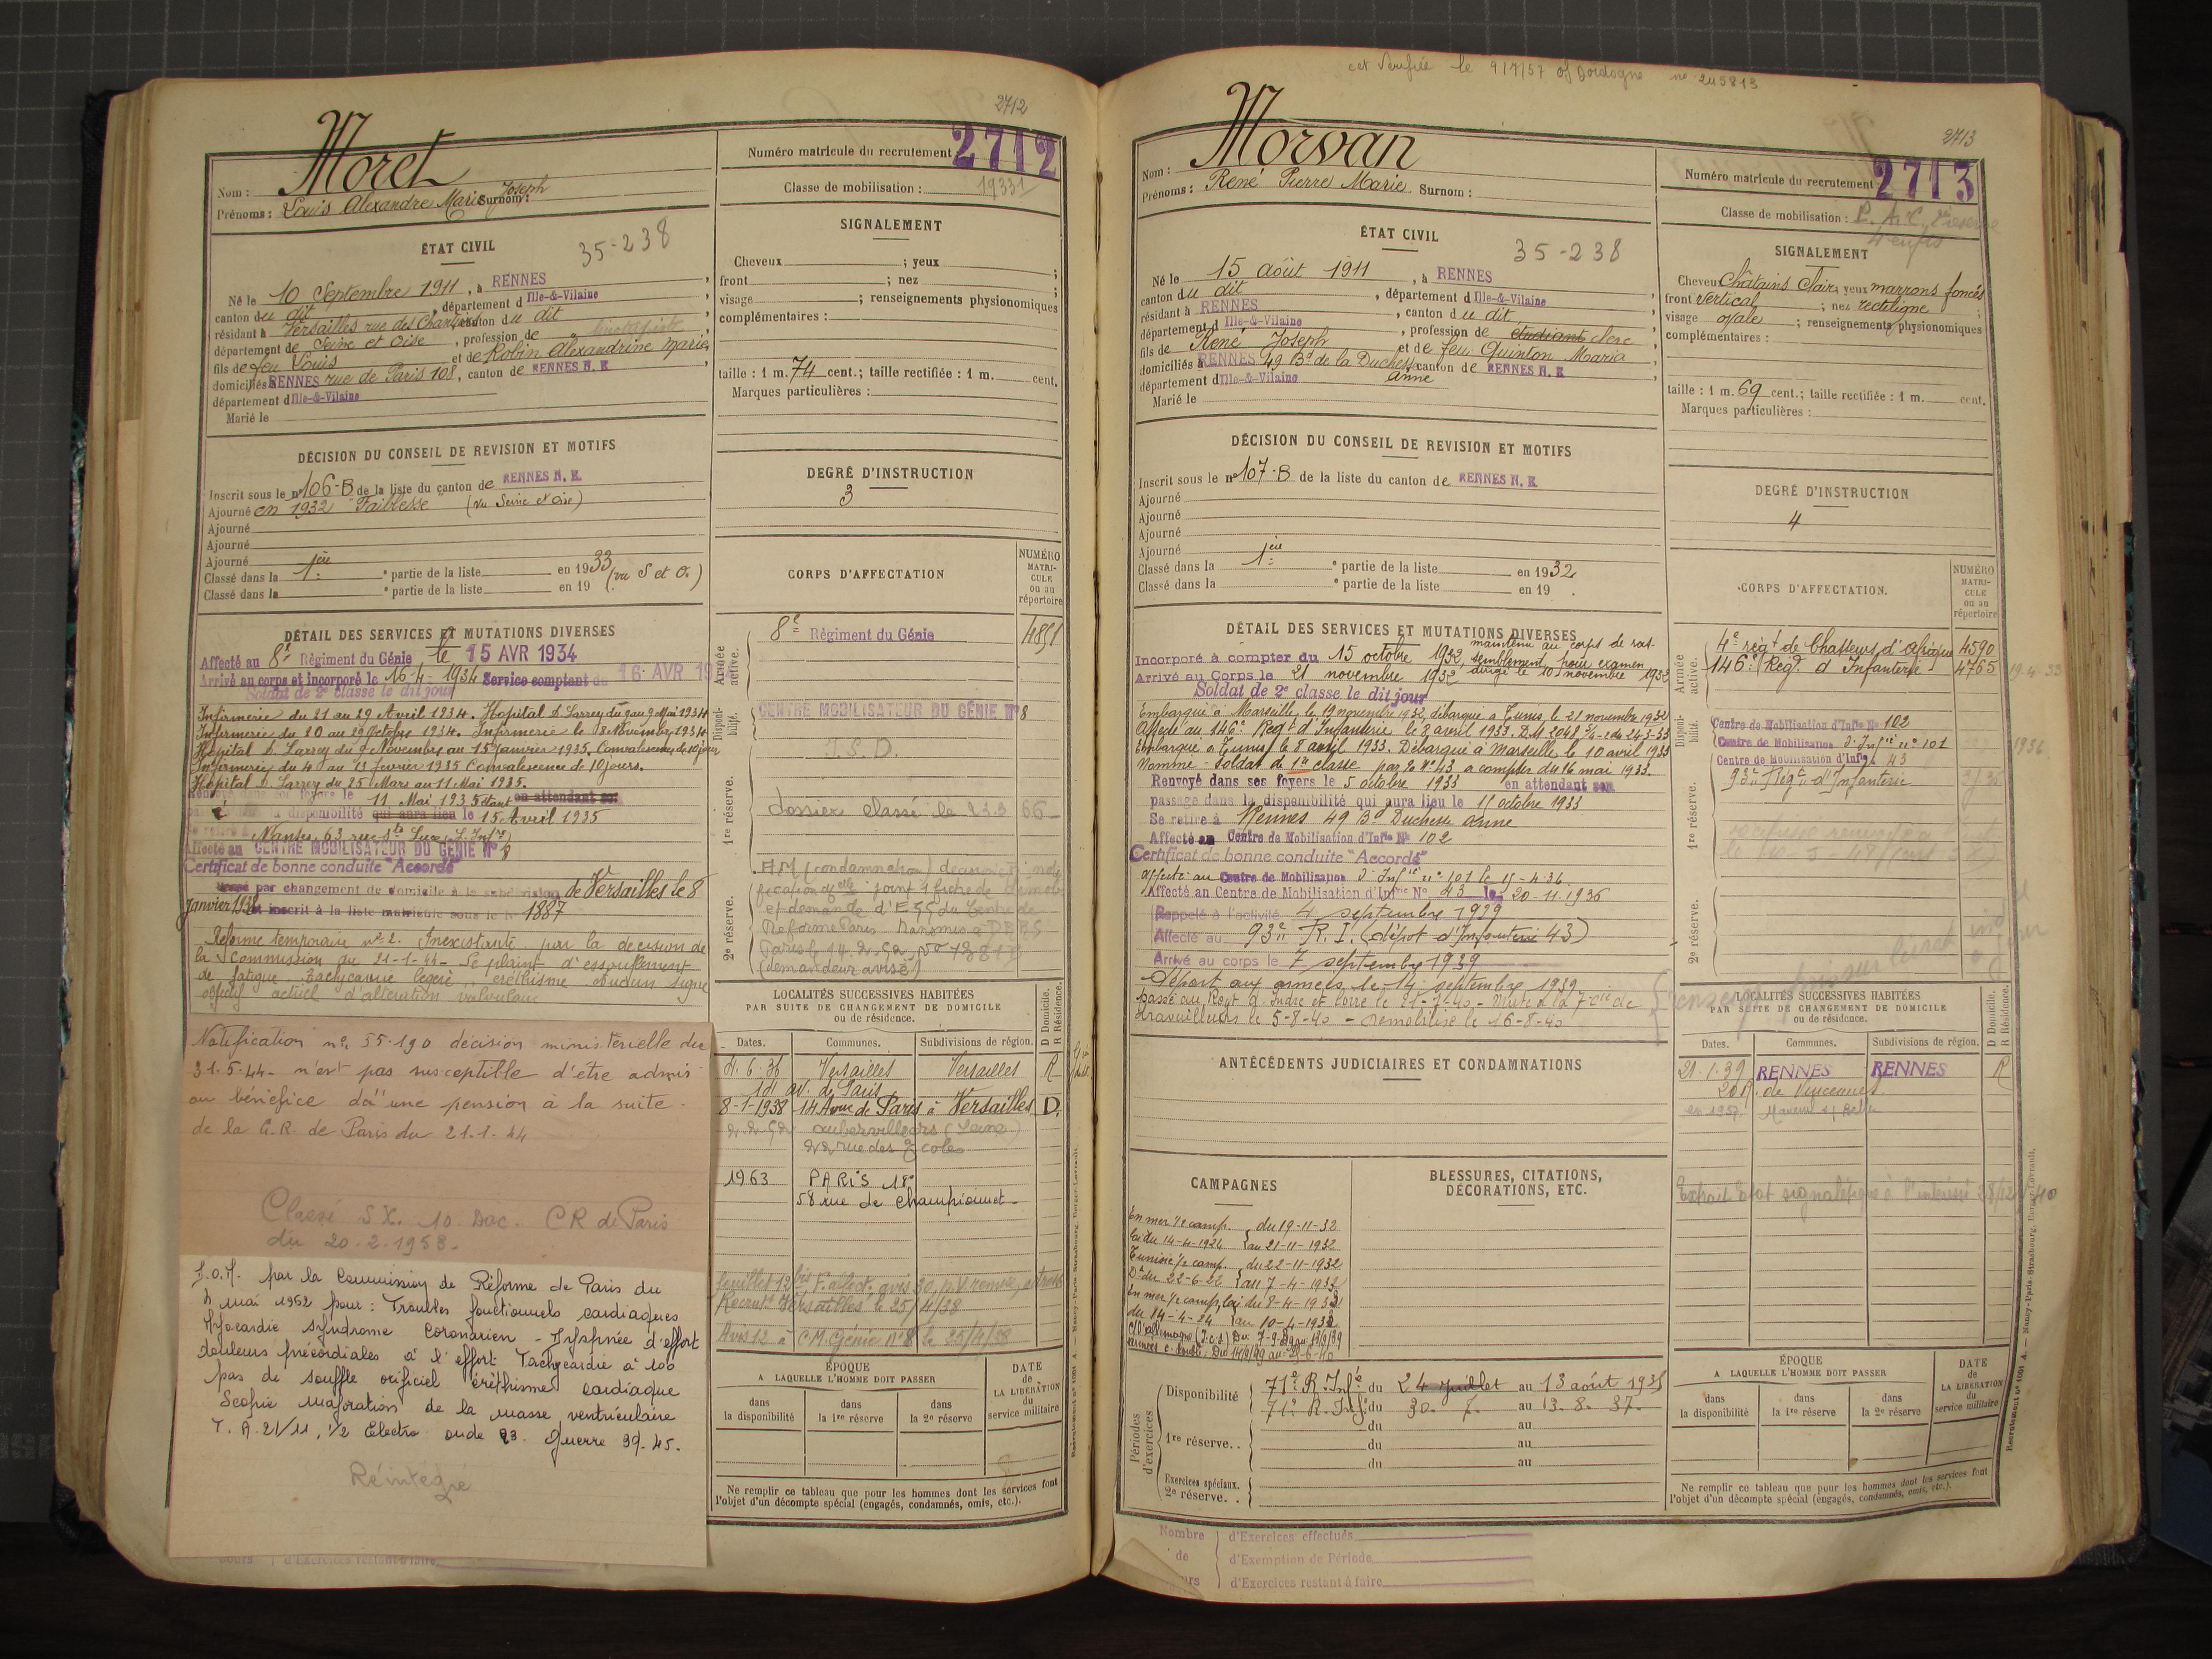 2712
Moret
Nom :
Prénoms : Louis Alexandre Marie Joseph Surnom :
Numéro matricule du recrutement 2712
Classe de mobilisation : 1933
ÉTAT CIVIL
35-238
Né le 10 Septembre 1911, à RENNES,
canton du dit, département d Ille-&-Vilaine
résidant à Versailles rue des Chantiers, canton du dit
département de Seine et Oise, profession de
fils de feu Louis et de Robin Alexandrine Marie,
domiciliés RENNES rue de Paris 108, canton de RENNES N. E
département d Ille-&-Vilaine
Marié le
SIGNALEMENT
Cheveux ; yeux ;
front ; nez ;
visage ; renseignements physionomiques
complémentaires :
taille : 1 m. 74 cent.; taille rectifiée : 1 m. cent.
Marques particulières :
DÉCISION DU CONSEIL DE REVISION ET MOTIFS
Inscrit sous le n° 106-B de la liste du canton de RENNES N. E.
Ajourné en 1932 "Faiblesse" (vu Seine et Oise)
Ajourné
Ajourné
Ajourné
Classé dans la 1ère partie de la liste en 1933 (vu S et O.)
Classé dans la partie de la liste en 19
DEGRÉ D'INSTRUCTION
3
DÉTAIL DES SERVICES ET MUTATIONS DIVERSES
Affecté au 8e Régiment du Génie le 15 AVR 1934
Arrivé au corps et incorporé le 16-4-1934 Service comptant du 16 AVR 19
Soldat de 2e classe le dit jour
Infirmerie du 21 au 29 Avril 1934. Hopital D. Larrey du 9 au 9 Mai 1934
Infirmerie du 20 au 29 Octobre 1934. Infirmerie le 8 Novembre 1934
Hôpital D. Larrey du 9 Novembre au 15 Janvier 1935. Convalescence de 10 jours
Infirmerie du 4 au 13 février 1935 Convalescence de 10 jours.
Hôpital D. Larrey du 25 Mars au 11 Mai 1935.
11 Mai 1935 étant en attendant son
disponibilité qui aura lieu le 15 Avril 1935
Nantes, 63 rue Ste Luce, L. Infre
Affecté au CENTRE MOBILISATEUR DU GÉNIE N° 8
Certificat de bonne conduite "Accordé"
par changement de domicile à la subdivision de Versailles le 8
janvier 1938 et inscrit à la liste matricule sous le n° 1887
Réforme temporaire n° 2. Inexistante par la décision de
la Commission du 21-1-44 - Se plaint d'essouflement
de fatigue. Tachycardie légère, éréthisme aucun signe
objectif actuel d'altération valvulaire
Notification n° 55.190 décision ministérielle du
31.5.44 - n'est pas susceptible d'être admis
au bénéfice d'une pension à la suite
de la C.R. de Paris du 21.1.44
Classé SX. 10 Doc. CR de Paris
du 20.2.1953.
par la Commission de Réforme de Paris du
4 mai 1962 pour : Troubles fonctionnels cardiaques
Myocardie syndrome coronarien - Dyspnée d'effort
douleurs précordiales à l'effort Tachycardie à 100
pas de souffle orificiel éréthisme cardiaque
Scopie majoration de la masse ventriculaire
T.A. 21/11, 1/2 Electro onde Guerre 39-45.
Réintégré
CORPS D'AFFECTATION
NUMÉRO MATRICULE ou au répertoire
Armée active.
8e Régiment du Génie 4851
Disponibilité.
CENTRE MOBILISATEUR DU GÉNIE N° 8
I.S.D.
1re réserve.
dossier classé le
2e réserve.
(demandeur avisé)
LOCALITÉS SUCCESSIVES HABITÉES
PAR SUITE DE CHANGEMENT DE DOMICILE
ou de résidence.
D Domicile. R Résidence.
Dates. Communes. Subdivisions de région.
4.6.36 Versailles Versailles R
av. de Paris
8-1-1938 14 Avue de Paris à Versailles D.
2-2-52 aubervilliers (Seine)
22 rue des Ecoles
1963 PARIS 18e
58 rue de Championnet
Recrut Versailles le 25/4/38
Avis 12 à C.M. Génie n° 8 le 25/4/38
ÉPOQUE
A LAQUELLE L'HOMME DOIT PASSER
dans la disponibilité
dans la 1re réserve
dans la 2e réserve
DATE de LA LIBÉRATION du service militaire
Ne remplir ce tableau que pour les hommes dont les services font
l'objet d'un décompte spécial (engagés, condamnés, omis, etc.).
d'Exercices restant à faire
le 9/7/57 Dordogne n° 245813
2713
Morvan
Nom :
Prénoms : René Pierre Marie Surnom :
Numéro matricule du recrutement 2713
Classe de mobilisation :
ÉTAT CIVIL
35-238
Né le 15 août 1911, à RENNES
canton du dit, département d Ille-&-Vilaine
résidant à RENNES, canton du dit,
département d Ille-&-Vilaine, profession de étudiant clerc
fils de René Joseph et de feu Quinton Maria
domiciliés à RENNES 49 Bd de la Duchesse Anne canton de RENNES N. E
département d Ille-&-Vilaine
Marié le
SIGNALEMENT
Cheveux Châtains Clairs yeux marrons foncés
front vertical ; nez rectiligne ;
visage ovale ; renseignements physionomiques
complémentaires :
taille : 1 m. 69 cent.; taille rectifiée : 1 m. cent.
Marques particulières :
DÉCISION DU CONSEIL DE REVISION ET MOTIFS
Inscrit sous le n° 107-B de la liste du canton de RENNES N. E.
Ajourné
Ajourné
Ajourné
Ajourné
Classé dans la 1ère partie de la liste en 1932
Classé dans la partie de la liste en 19
DEGRÉ D'INSTRUCTION
4
DÉTAIL DES SERVICES ET MUTATIONS DIVERSES
Incorporé à compter du 15 octobre 1932, maintenu au corps de rassemblement pour examen
Arrivé au Corps le 21 novembre 1932 dirigé le 10 novembre 1932
Soldat de 2e classe le dit jour
Embarqué à Marseille, le 19 novembre 1932, débarqué à Tunis, le 21 novembre 1932
Affecté au 146e Regt d'Infanterie le 8 avril 1933. D.M 2048 du 24-3-33
Embarqué à Tunis le 8 avril 1933. Débarqué à Marseille, le 10 avril 1933
Nommé Soldat de 1re classe par N° 43 à compter du 16 mai 1933.
Renvoyé dans ses foyers le 5 octobre 1933 en attendant son
passage dans la disponibilité qui aura lieu le 15 octobre 1933
Se retire à Rennes 49 Bd Duchesse Anne
Affecté au Centre de Mobilisation d'Infie N° 102
Certificat de bonne conduite "Accordé"
affecté au Centre de Mobilisation d'Infie n° 101 le 15-4-36.
Affecté au Centre de Mobilisation d'Infie N° 43 le 20-11-1936
Rappelé à l'activité 4 septembre 1939
Affecté au 93e R.I. (dépôt d'Infanterie 43)
Arrivé au corps le 7 septembre 1939
Départ aux armées le 14 septembre 1939
passé au Regt d'Indre et Loire le 21-7-40 - Muté à la 7e cie de
travailleurs le 5-8-40 - Démobilisé le 16-8-40
CORPS D'AFFECTATION.
NUMÉRO MATRICULE ou au répertoire
Armée active.
4e régt de Chasseurs d'afrique 4590
146e Regt d'Infanterie 4765 19-4-33
Disponibilité.
Centre de Mobilisation d'Infie N° 102
Centre de Mobilisation d'Infie n° 101 1936
Centre de Mobilisation d'Infie 43
1re réserve.
93e Regt d'Infanterie
2e réserve.
ANTÉCÉDENTS JUDICIAIRES ET CONDAMNATIONS
LOCALITÉS SUCCESSIVES HABITÉES
PAR SUITE DE CHANGEMENT DE DOMICILE
ou de résidence.
D Domicile. R Résidence.
Dates. Communes. Subdivisions de région.
21.1.39 RENNES RENNES R
20 R. de Vincennes
en 1957
CAMPAGNES
En mer 1/2 camp. du 19-11-32
Loi du 14-4-1924 au 21-11-1932
Tunisie 1/2 camp. du 22-11-1932
Dt du 22-6-22 au 7-4-1933
En mer 1/2 camp, loi du 8-4-1933
du 14-4-24 au 10-4-1933
BLESSURES, CITATIONS,
DÉCORATIONS, ETC.
Extrait Etat signalétique à l'intéressé
Périodes d'exercices
Disponibilité 71e R. Infie du 24 juillet au 13 août 1935
71e R. Infie du 30. 7. au 13. 8. 37.
1re réserve.. du au
du au
du au
Exercices spéciaux.
2e réserve..
ÉPOQUE
A LAQUELLE L'HOMME DOIT PASSER
dans la disponibilité
dans la 1re réserve
dans la 2e réserve
DATE de LA LIBÉRATION du service militaire
Ne remplir ce tableau que pour les hommes dont les services font
l'objet d'un décompte spécial (engagés, condamnés, omis, etc.).
Nombre de
d'Exercices effectués
d'Exemption de Période
d'Exercices restant à faire